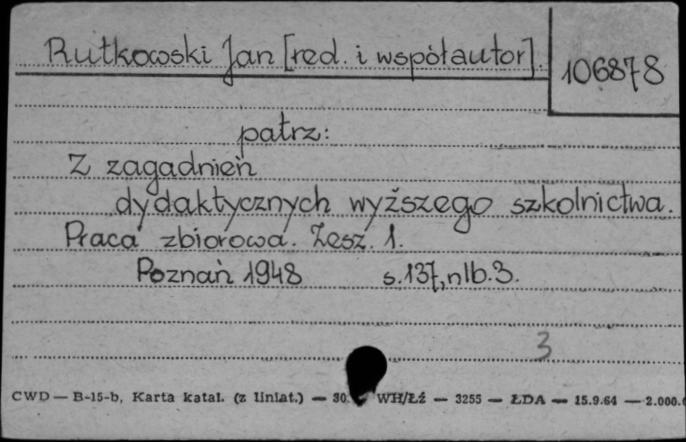 Rutkowski Jan [red. i współautor].
106878
patrz:
Z zagadnień
dydaktycznych wyższego szkolnictwa.
Praca zbiorowa. Zesz. 1.
Poznań 1948 s. 137, nlb. 3.
3
CWD — B-15-b, Karta katal. (z liniat.) — 30 WH/Łź — 3255 — ŁDA — 15.9.64 — 2.000.